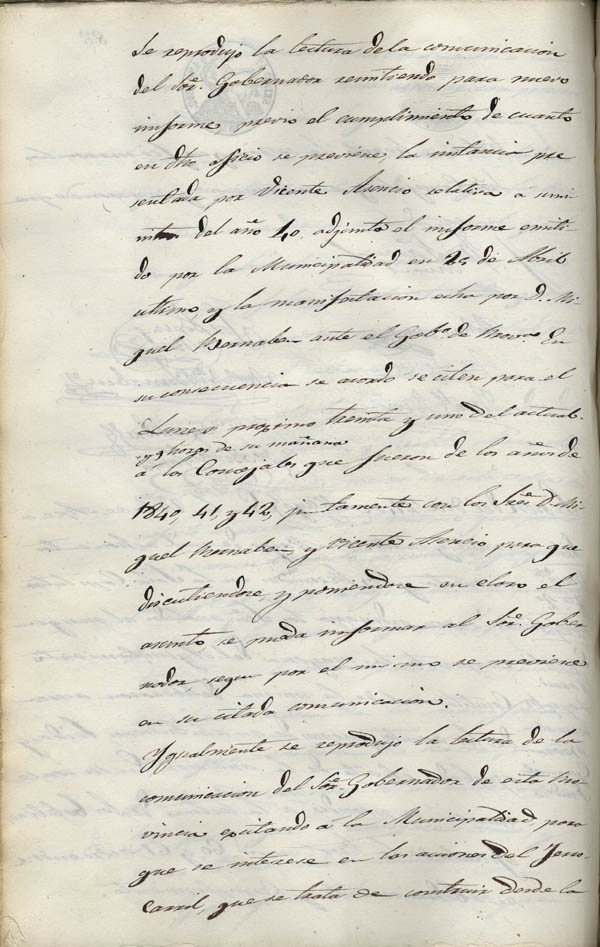 Se reprodujo la lectura de la comunicacion
del Sor. Gobernador remitiendo para nuevo
informe, previo el cumplimiento de cuanto
en dho. oficio se previene, la instancia pre
sentada por Vicente Asencio relativa á sumi
del año 40. adjunto el informe emiti-
do por la Municipalidad en 25 de Abril
ultimo, y la manifestacion echa por D. Mi-
guel Bernabeu ante el Gobo. de Prova. En
su consecuencia se acordo se citen para el
Lunes proximo treinta y uno del actual
y 9 horas de su mañana
á los Concejales que fueron de los años de
1840, 41 y 42, juntamente con los Sres. D. Mi-
guel Bernabeu, y Vicente Asencio para que
discutiendose y poniendose en claro el
asunto se pueda informar al Sor. Gober
nador, segun por el mismo se previene
en su citada comunicacion.
Ygualmente se reprodujo la lectura de la
comunicacion del Sor. Gobernador de esta Pro
vincia excitando á la Municipalidad para
que se interese en las acciones del Ferro-
carril, que se trata de construir desde la